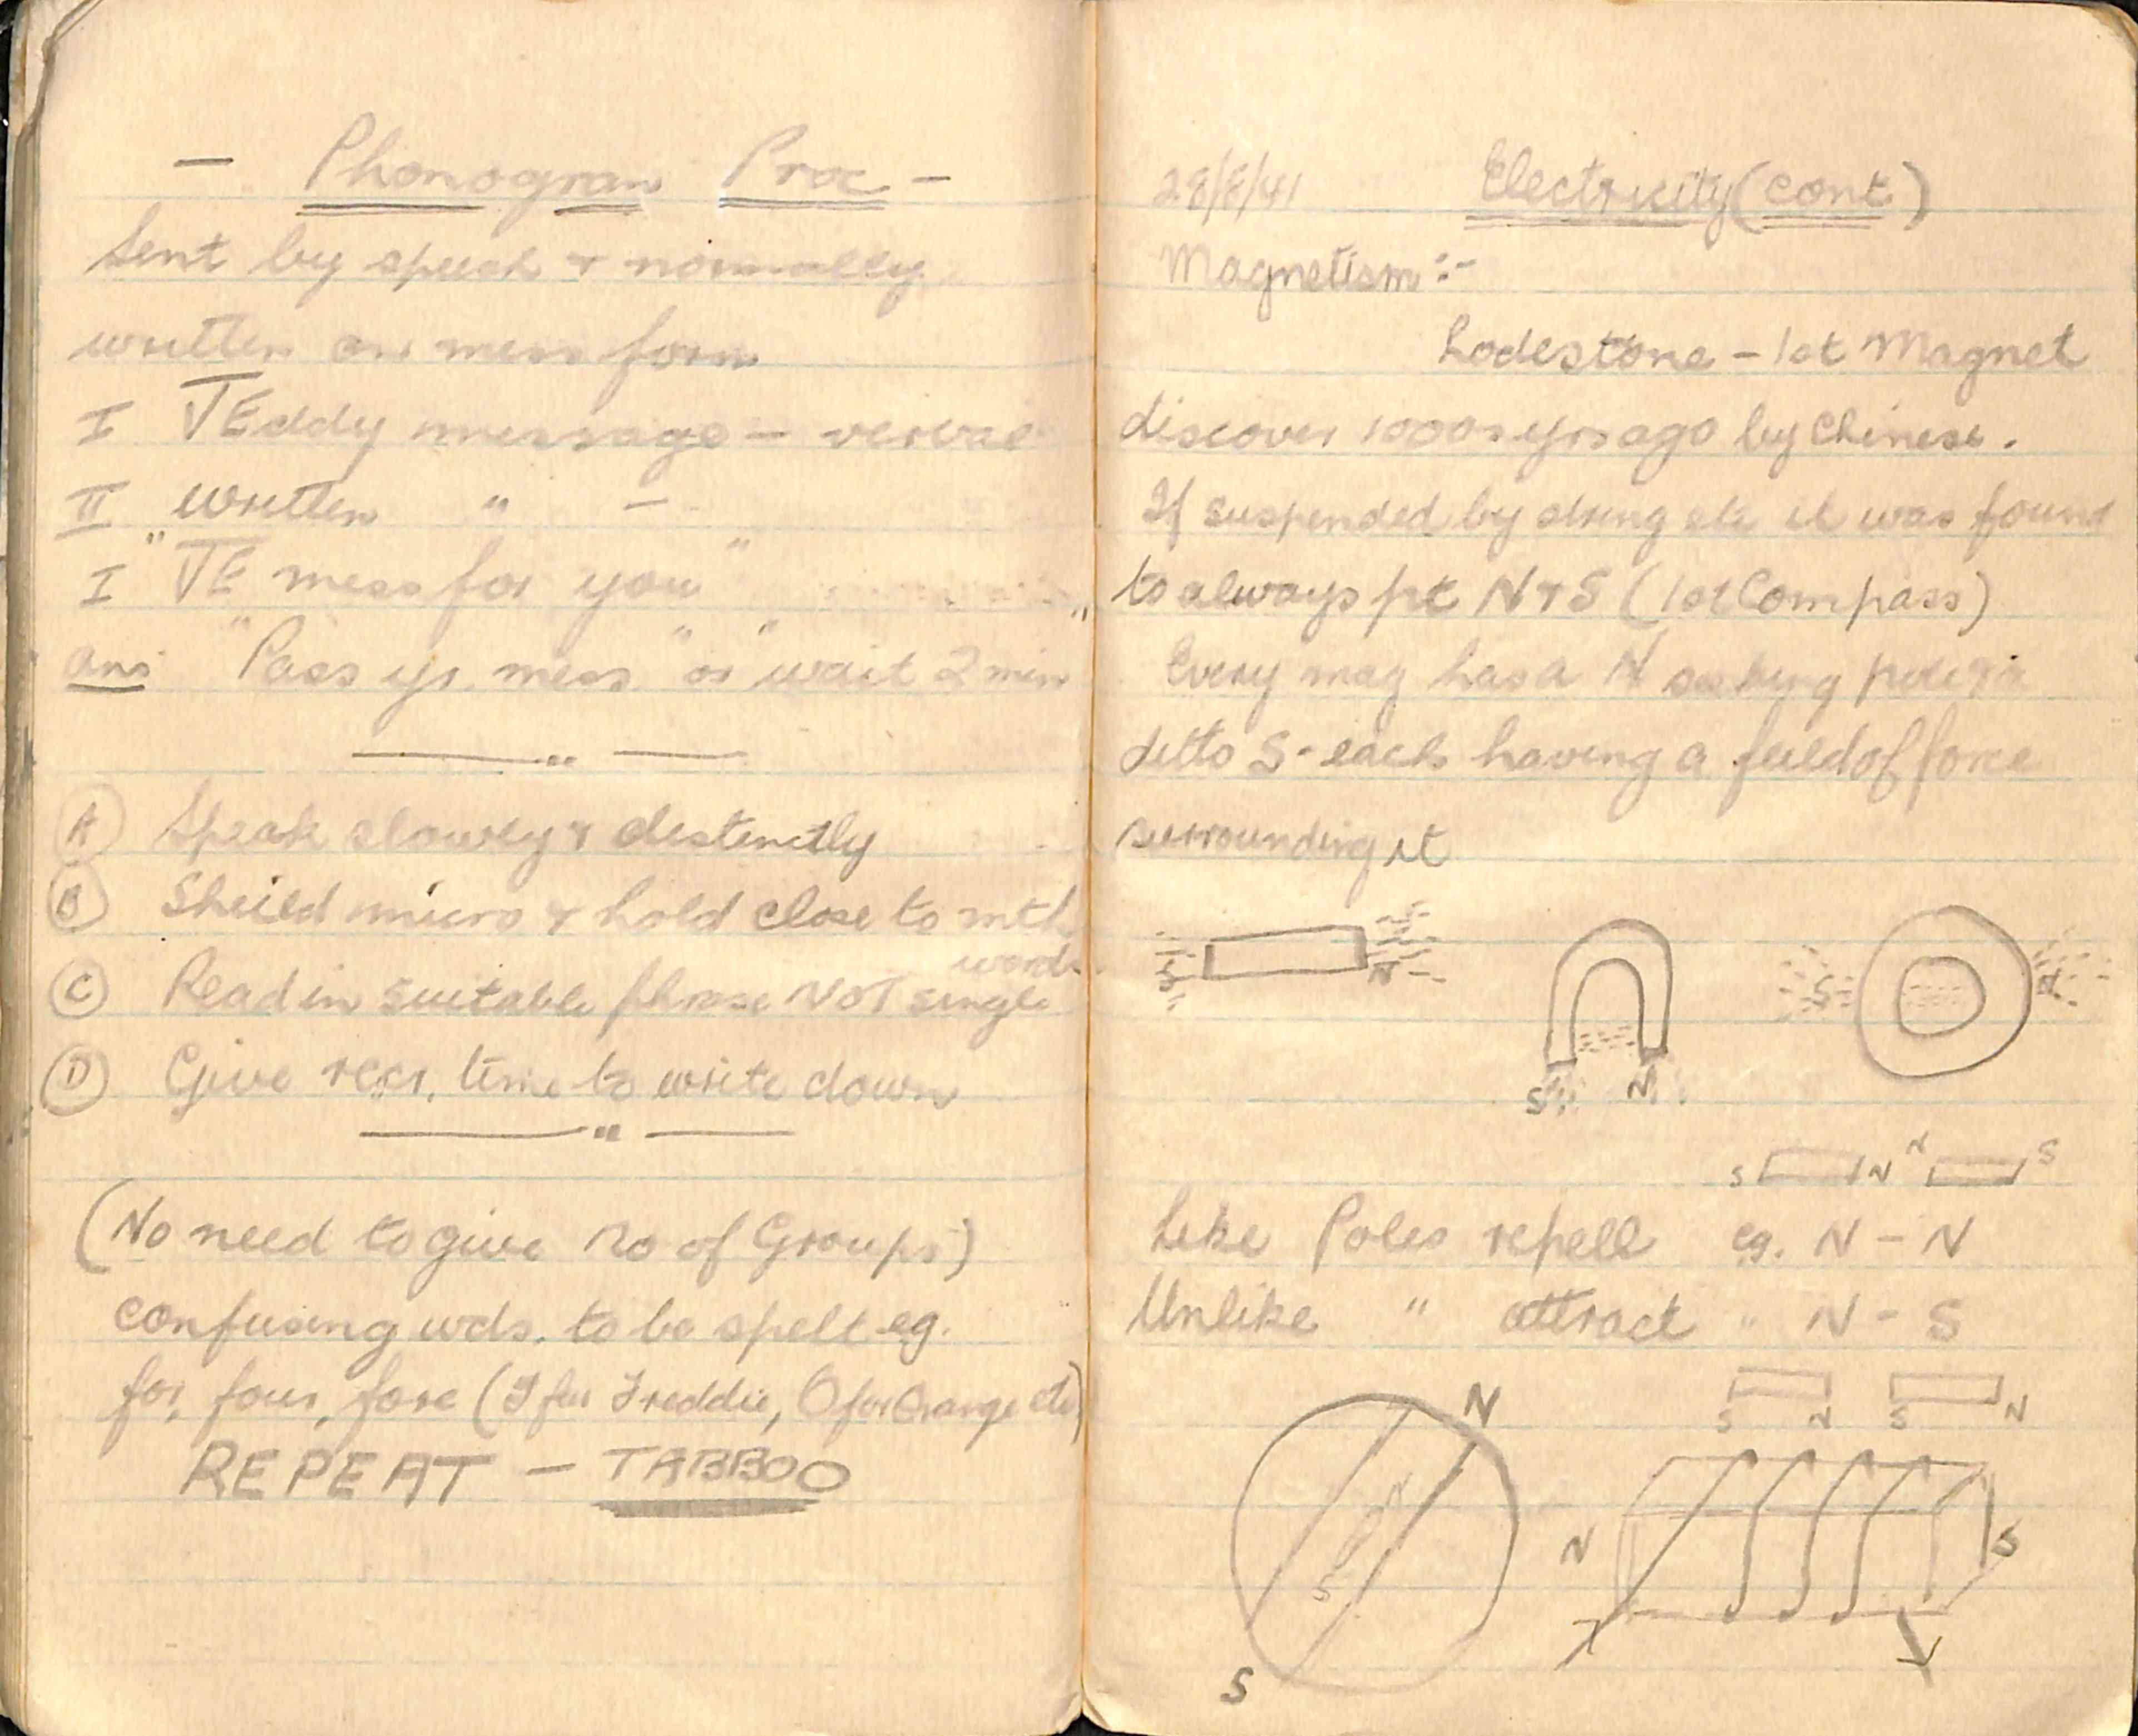 - Phonogram Proc -
Sent by speech & normally
written on mess form
I TEddy message - verbal
II written " -
I "TE mess for you"
ans "Pass yr. mess" or "wait 2 min"
— " —
A Speak slowly & distinctly
B Sheild micro & hold close to mth
C Read in suitable phrase NOT single words
D Give recr. time to write down
— " —
(No need to give no of Groups)
confusing wds. to be spelt eg.
for, four, fore (F for Freddie, O for Orange etc)
REPEAT - TABBOO
28/8/41 Electricity (cont.)
Magnetism :-
Lodestone - 1st Magnet
discover 1000s yrs ago by Chinese.
If suspended by string etc it was found
to always pt N & S (1st Compass)
Every mag has a N seeking pole &
ditto S - each having a feild of force
surrounding it
S N
S N
S N
S N N S
Like Poles repell eg. N - N
Unlike " attract " N - S
S N S N
N
S
N S